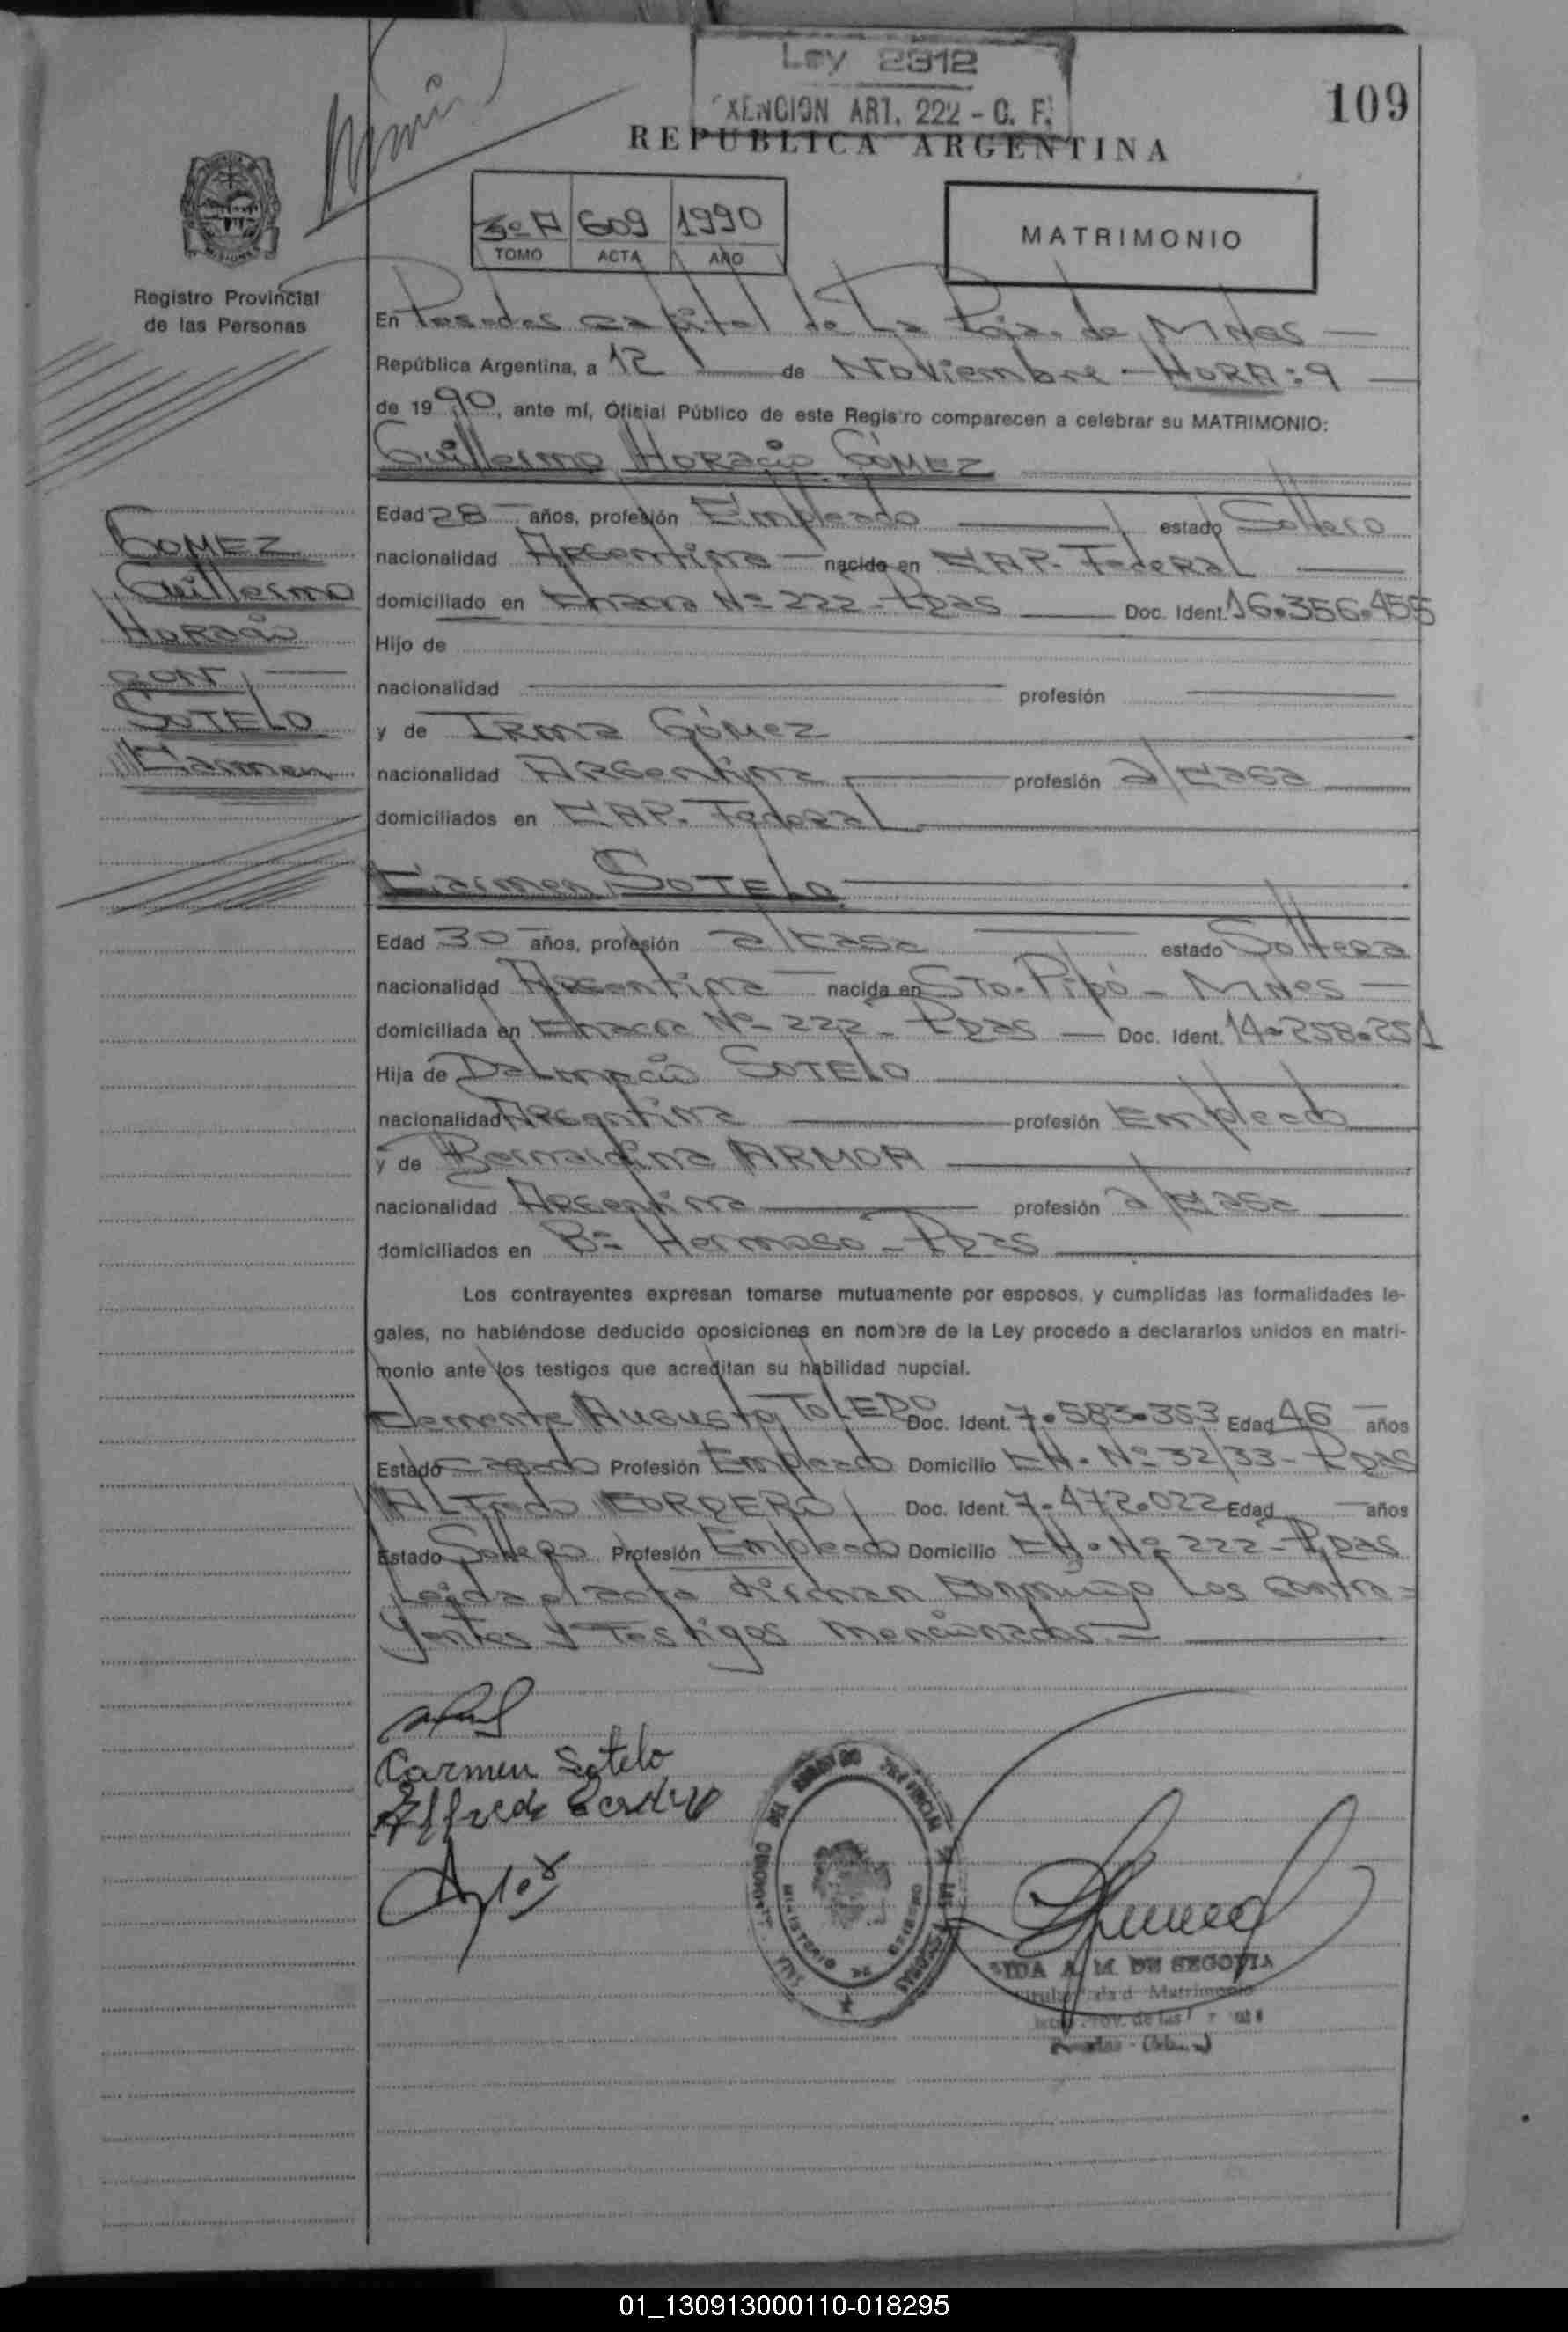 Ley 2312
EXENCION ART. 222 - C. F.
109
REPUBLICA ARGENTINA
3º A 609 1990
TOMO ACTA AÑO
MATRIMONIO
Registro Provincial
de las Personas
En Posadas capital de La Pcia. de Mnes
República Argentina, a 12 de Noviembre - HORA: 9
de 1990, ante mí, Oficial Público de este Registro comparecen a celebrar su MATRIMONIO:
Guillermo Horacio GÓMEZ
Edad 28 años, profesión Empleado estado Soltero
nacionalidad Argentina nacido en CAP. Federal
domiciliado en Chacra Nº 222 - Pdas Doc. Ident. 16.356.455
Hijo de
nacionalidad profesión
y de Irma Gómez
nacionalidad Argentina profesión a/casa
domiciliados en CAP. Federal
GOMEZ
Guillermo
Horacio
con
SOTELO
Carmen
Carmen SOTELO
Edad 30 años, profesión a/casa estado Soltera
nacionalidad Argentina nacida en Sto. Pipó - Mnes
domiciliada en Chacra Nº 222 - Pdas Doc. Ident. 14.258.251
Hija de Dalmacio SOTELO
nacionalidad Argentina profesión Empleado
y de Bernardina ARMOA
nacionalidad Argentina profesión a/casa
domiciliados en Bº Hermoso - Pdas
Los contrayentes expresan tomarse mutuamente por esposos, y cumplidas las formalidades le-
gales, no habiéndose deducido oposiciones en nombre de la Ley procedo a declararlos unidos en matri-
monio ante los testigos que acreditan su habilidad nupcial.
Clemente Augusto TOLEDO Doc. Ident. 7.583.353 Edad 46 años
Estado Casado Profesión Empleado Domicilio CH. Nº 32/33 - Pdas
Alfredo CORDERO Doc. Ident. 7.472.022 Edad años
Estado Soltero Profesión Empleado Domicilio CH. Nº 222 - Pdas
Leída el acta firman conmigo Los contra=
yentes y Testigos mencionados.-
Carmen Sotelo
Alfredo Cordero
A. M. DE SEGOVIA
Matrimonio
Prov. de las
01_130913000110-018295